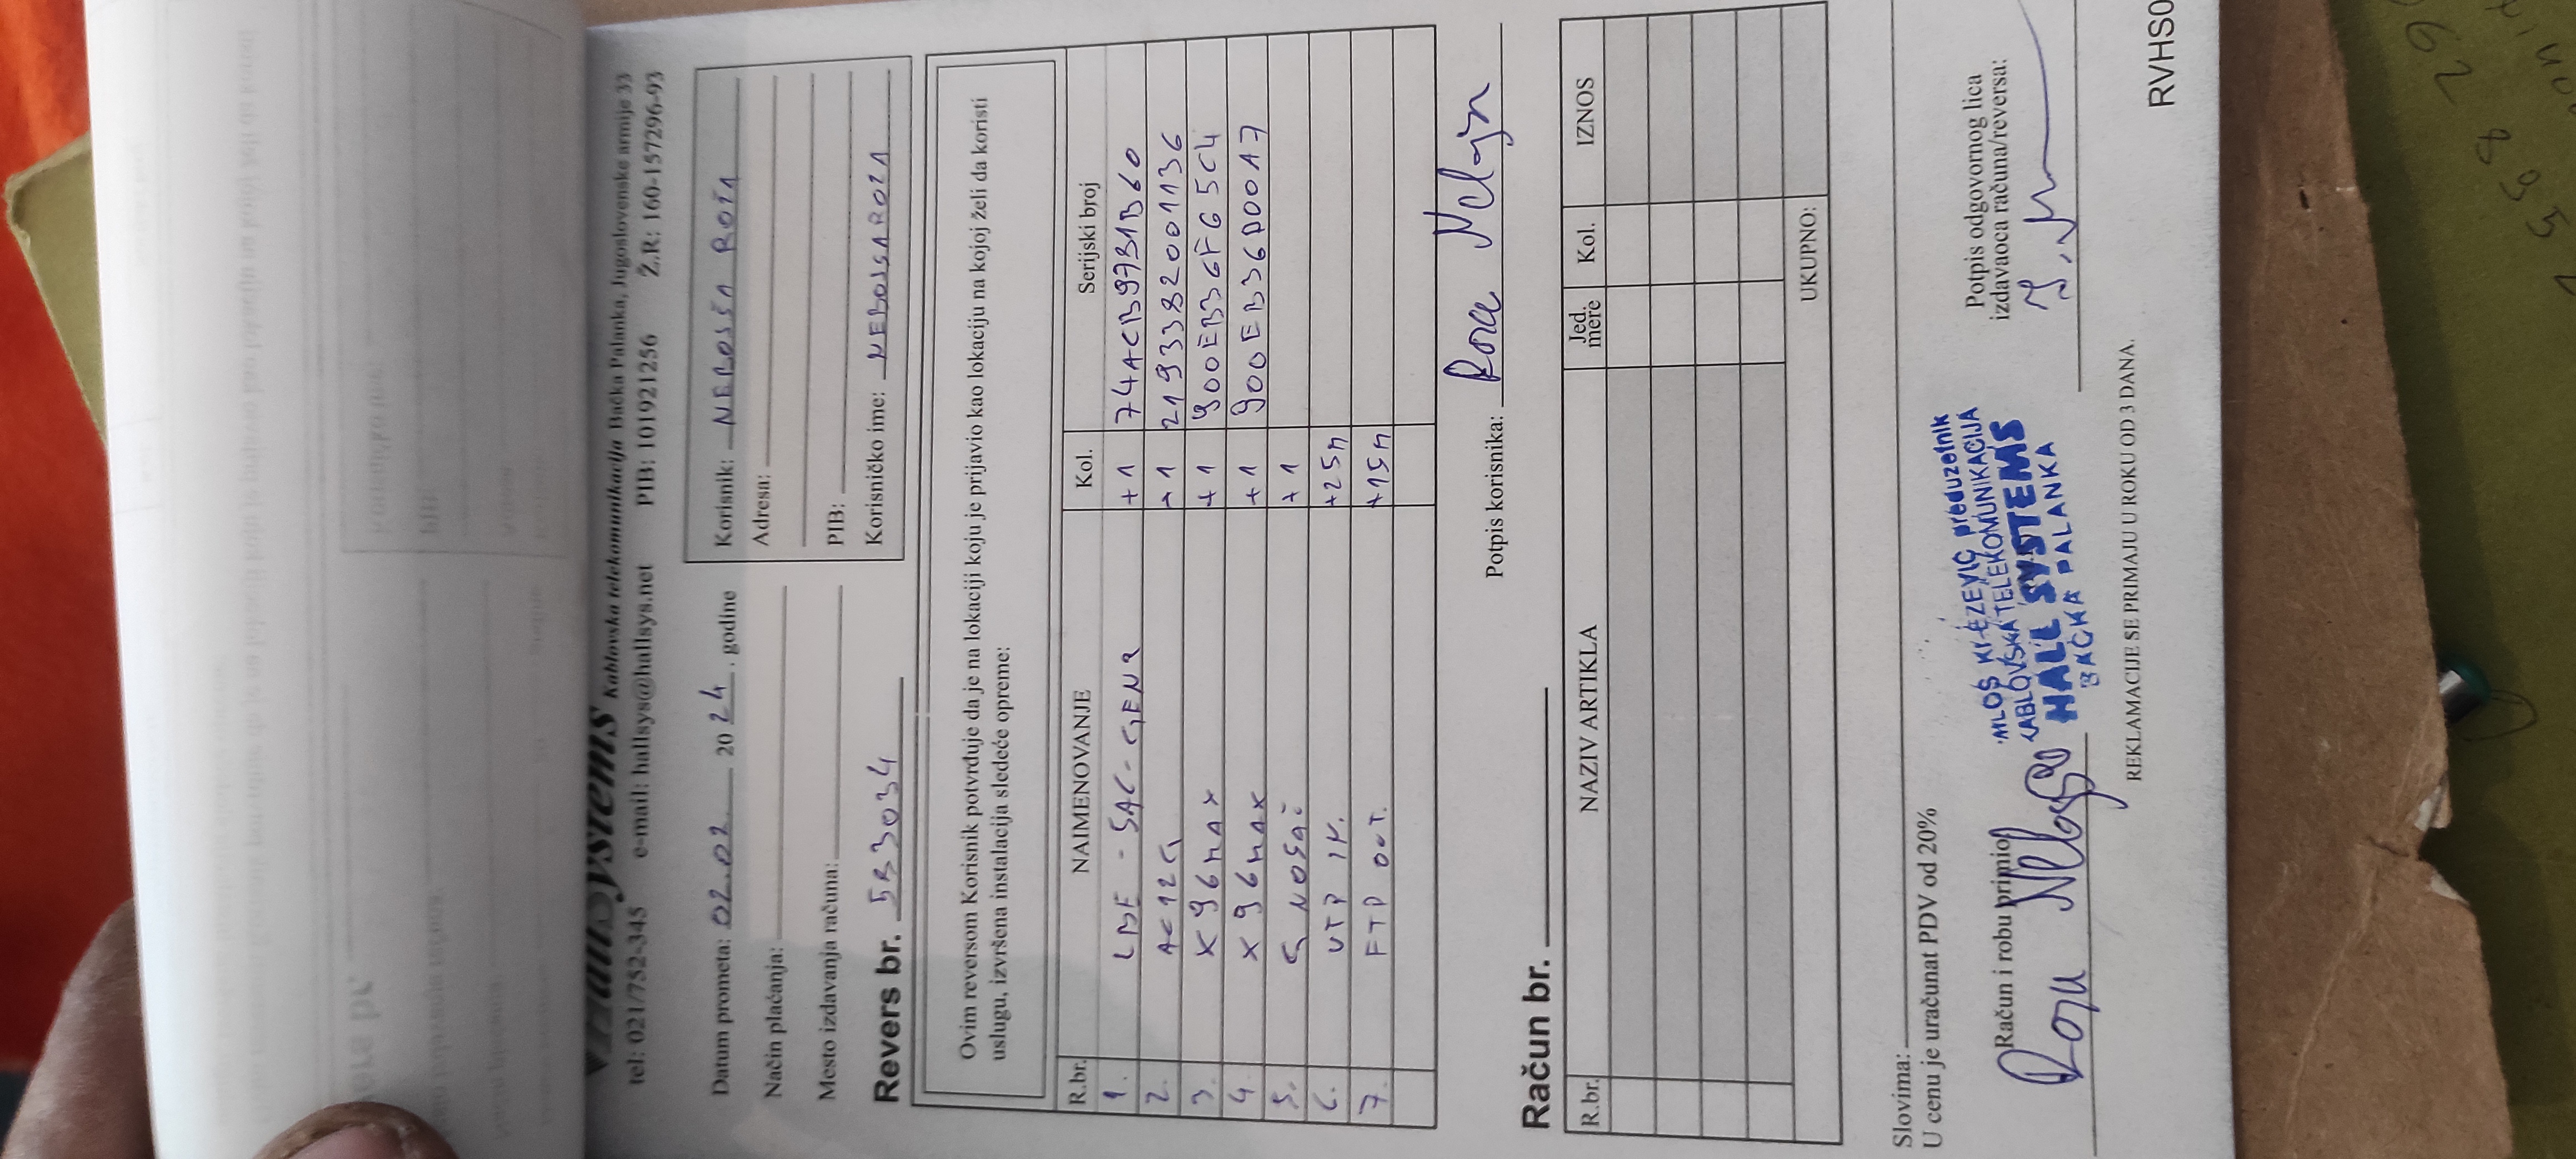 HallSystems Kablovska telekomunikacija Bačka Palanka, Jugoslovenske armije 33
tel: 021/752-345 e-mail: hallsys@hallsys.net PIB: 101921256 Ž.R: 160-157296-93
Datum prometa: 02.02 20 24 . godine
Način plaćanja:
Mesto izdavanja računa:
Revers br. 5R3034
Korisnik: NEBOJŠA ROŽA
Adresa:
PIB:
Korisničko ime: NEBOJSAROZA
Ovim reversom Korisnik potvrđuje da je na lokaciji koju je prijavio kao lokaciju na kojoj želi da koristi
uslugu, izvršena instalacija sledeće opreme:
R.br. NAIMENOVANJE Kol. Serijski broj
1. LBE-5AC-GEN2 +1 74ACB9731B60
2. AC12G +1 2193382001136
3. X96MAX +1 900EB3CFG5C4
4. X96MAX +1 900EB36D00A7
5. G NOSAČ +1
6. UTP IN. +25M
7. FTP OUT. +15M
Potpis korisnika:
Račun br.
R.br. NAZIV ARTIKLA Jed. mere Kol. IZNOS
UKUPNO:
Slovima:
U cenu je uračunat PDV od 20%
Račun i robu primio
MILOŠ KNEZEVIĆ preduzetnik
KABLOVSKA TELEKOMUNIKACIJA
HALL SYSTEMS
BAČKA PALANKA
Potpis odgovornog lica
izdavaoca računa/reversa:
REKLAMACIJE SE PRIMAJU U ROKU OD 3 DANA.
RVHS0